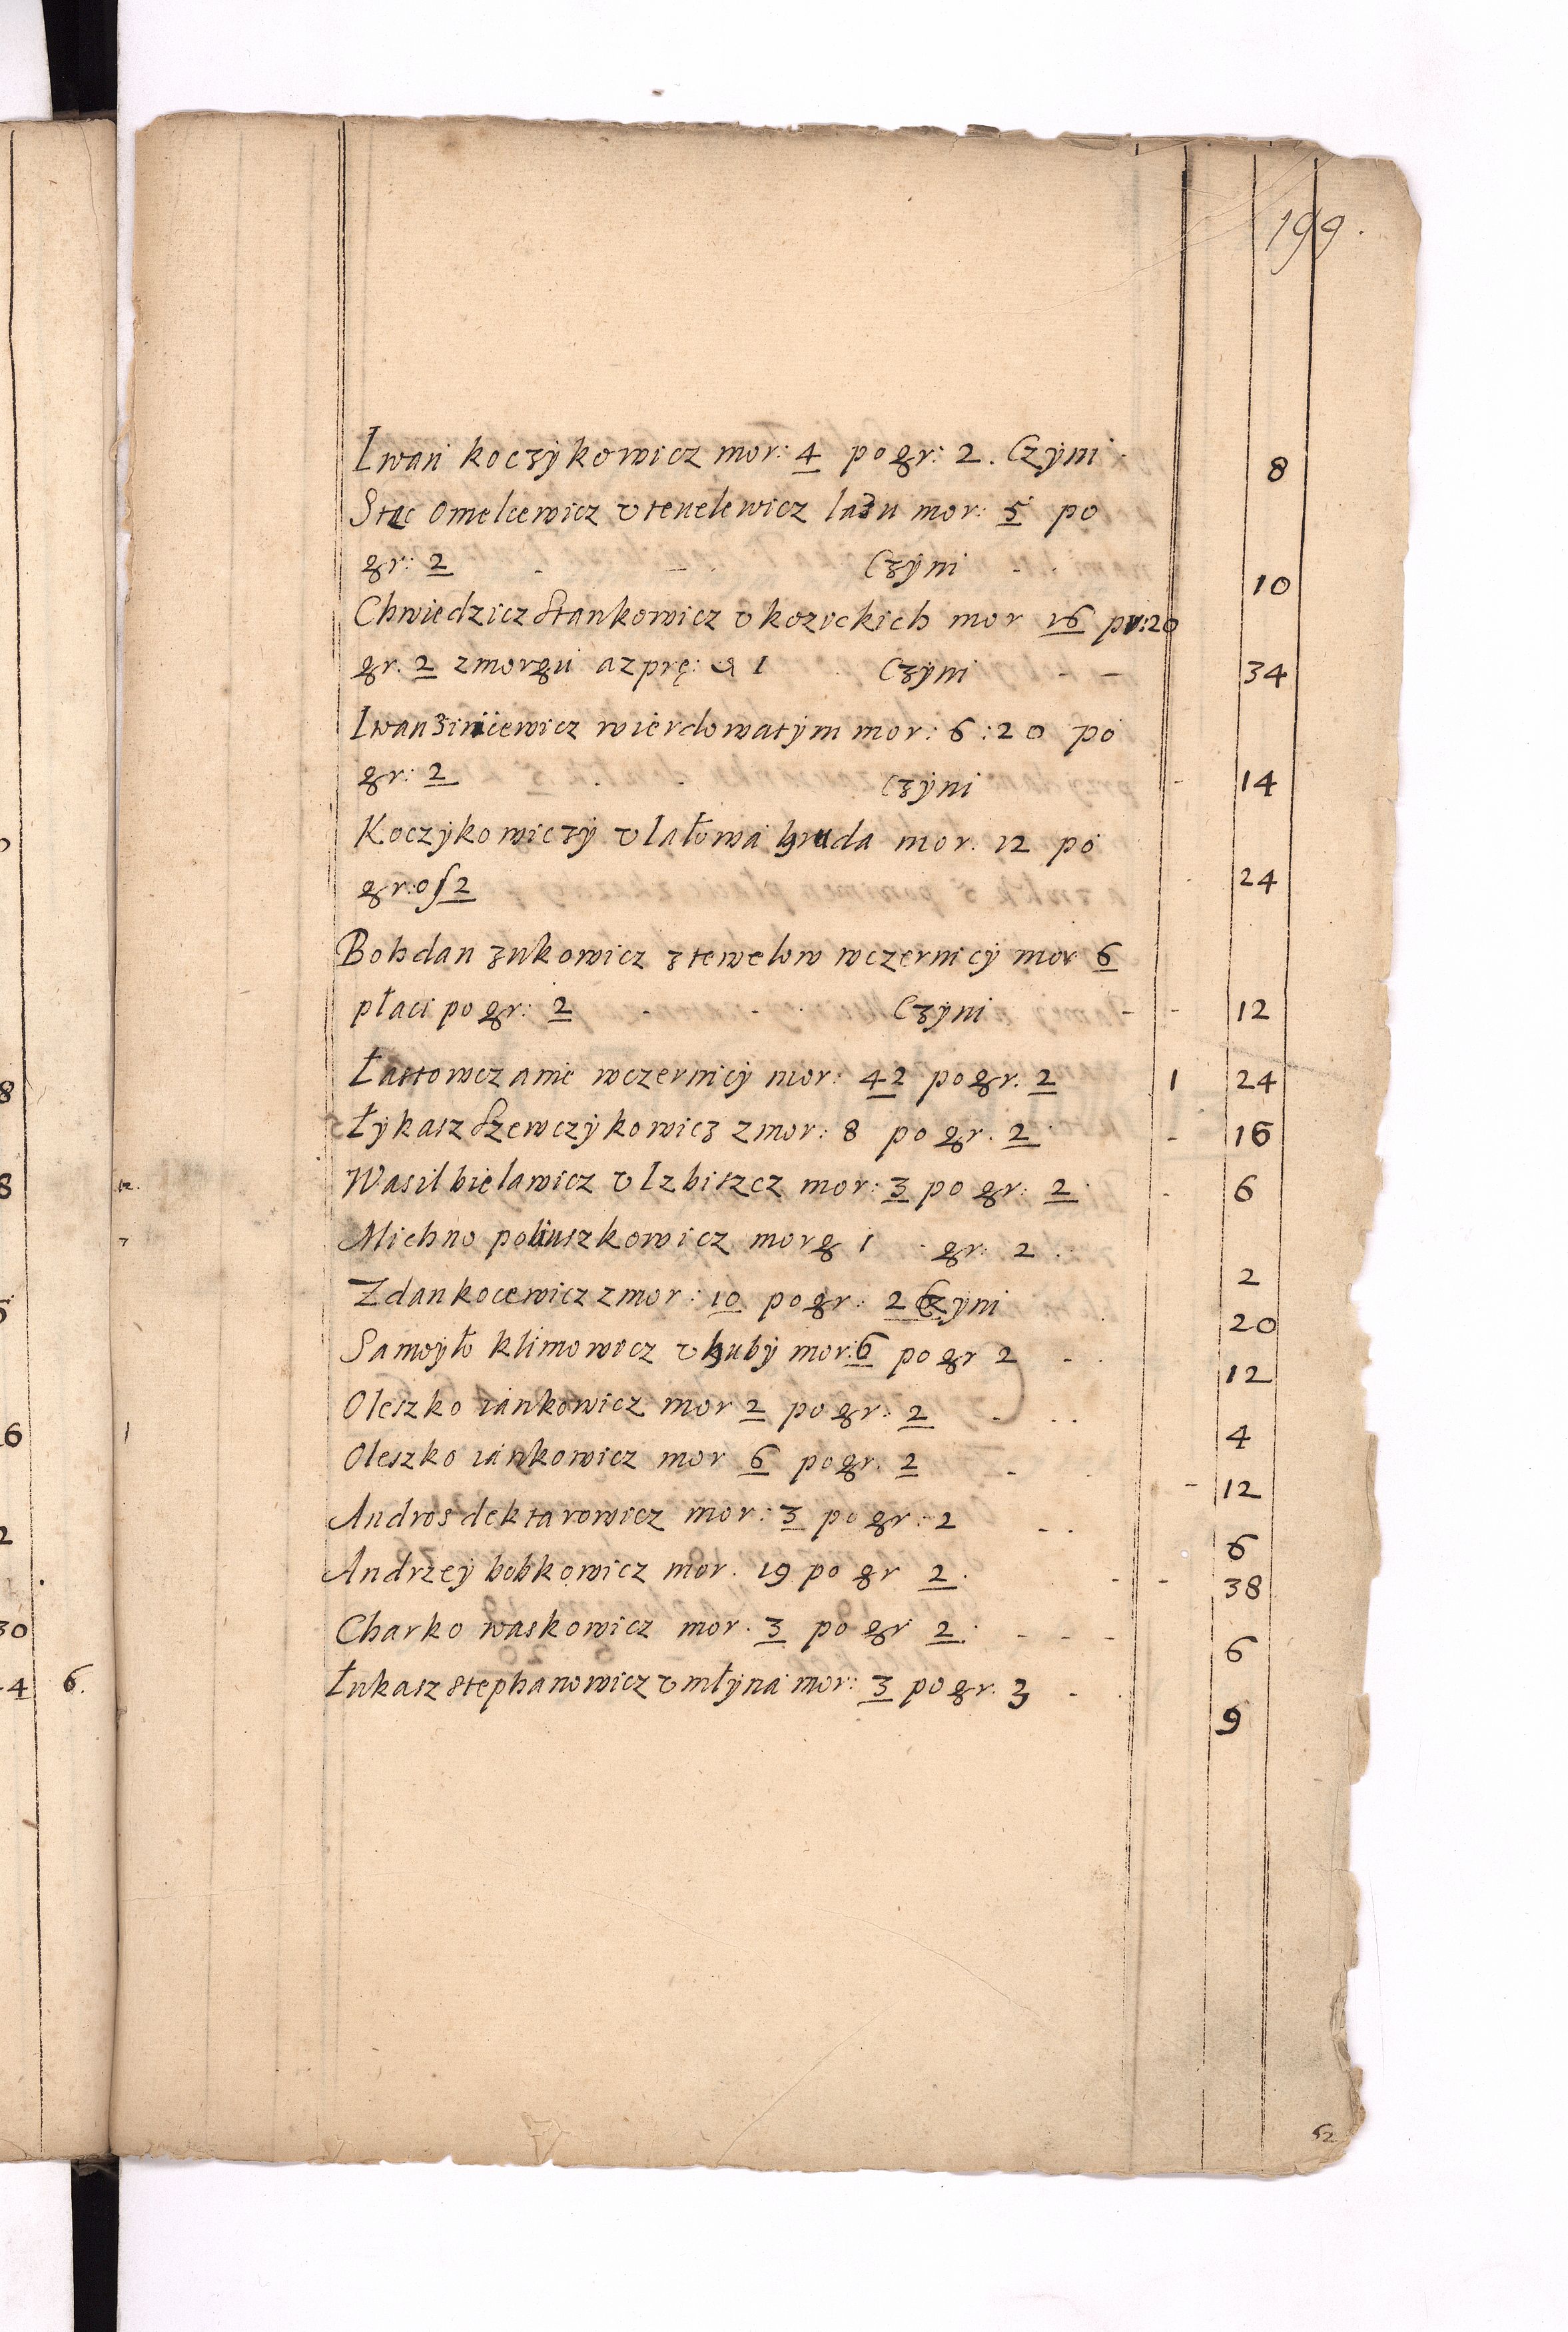 199.
Iwan koczykowicz mor: 4 po gr: 2. Czyni 8
Stac omelcewicz v tenelewicz lazu mor: 5 po
gr: 2 - - Czyni - 10
Chwiedzicz Stankowicz v kozickich mor 16 pr:20
gr. 2 zmorgu a z prę: a 1 Czyni - - 34
Iwan wierdowatym mor: 6:20 po
gr: 2 - - czyni - 14
Koczykowiczy v lałowa hruda mor. 12 po
gr: 2 24
Bohdan zukowicz z tewelow wczernicy mor 6
płaci po gr: 2 - - Czyni - - 12
Łastowczanie wczernicy mor: 42 po gr. 2 1 24
Łykasz Szewczykowicz zmor: 8 po gr. 2 - 16
Wasil bielawicz v Izbiszcz mor: 3 po gr: 2 - 6
Michno morg 1 gr: 2 2
Zdan kocewicz zmor: 10 po gr: 2 Czyni 20
Samoyło klimowicz v huby mor: 6 po gr 2 - 12
Oleszko iankowicz mor 2 po gr: 2 - 4
Oleszko iankowicz mor 6 po gr. 2 - - 12
Andros dektarowicz mor: 3 po gr: 2 - 6
Andrzey bobkowicz mor. 19 po gr 2. - - 38
Charko waskowicz mor. 3 po gr 2. - - - 6
Łukasz stephanowicz v młyna mor: 3 po gr. 3 - 9
52